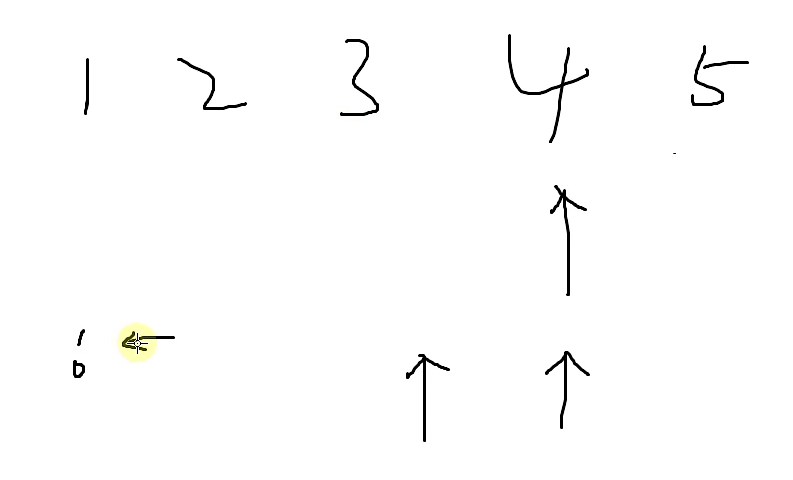 1 2 3 4 5
1
0